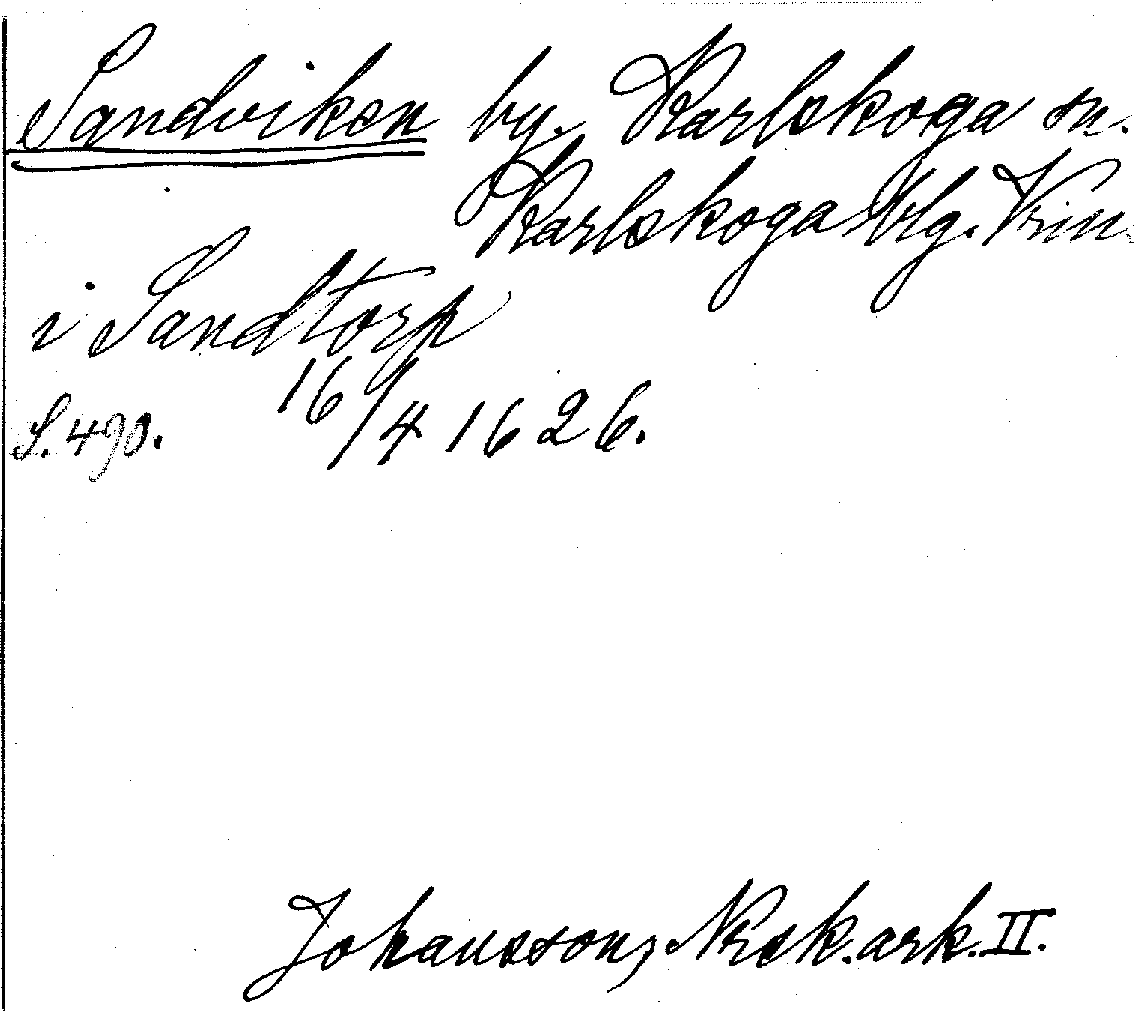 Sandviken by. Karlskoga sn.
Karlskoga blg. Krin.
i Sandtorp
S. 490. 16/4 1626.
Johansson, Nrsk. ark. II.